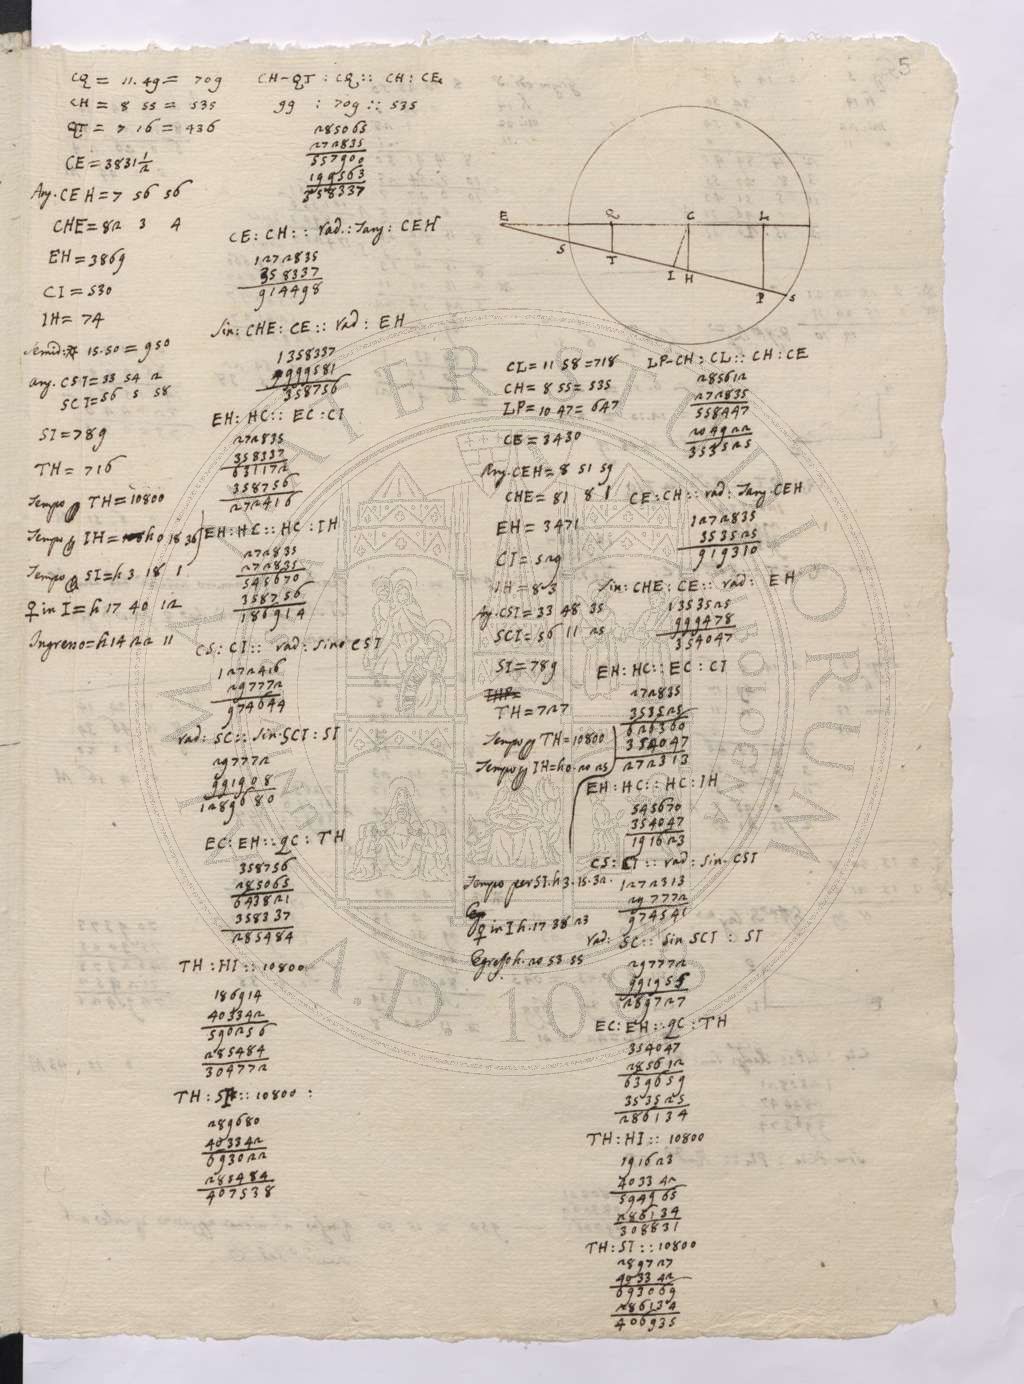 5
CQ = 11. 49 = 709
CH = 8 55 = 535
QT = 7 16 = 436
CE = 3831 1/2
Ang. CEH = 7 56 56
CHE = 82 3 4
EH = 3869
CI = 530
IH = 74
Semid: 15.50 = 950
Ang. CST = 33 54 2
SCI = 56 5 58
SI = 789
TH = 716
Tempo TH = 10800
Tempo IH = h 0 18 36
Tempo SI = h 3 18 1
♀ in I = h 17 40 12
Ingresso = h 14 22 11
CH-QT : CQ :: CH : CE
99 : 709 :: 535
285065
272835
557900
199563
358337
CE : CH :: rad : Tang : CEH
1272835
358337
914498
Sin : CHE : CE :: rad : EH
1358337
9999581
358756
EH : HC :: EC : CI
272835
358337
631172
358756
272416
EH : HC :: HC : IH
272835
272835
545670
358756
186914
CS : CI :: rad : sino CST
1272416
297772
974644
rad : SC :: Sin. SCI : SI
297772
991908
1289680
EC : EH :: QC : TH
358756
285065
643821
358337
285484
TH : HI :: 10800
186914
403342
590256
285484
304772
TH : SI :: 10800 :
289680
403342
693022
285484
407538
E
Q
C
L
S
T
I
H
P
S
CL = 11 58 = 718
CH = 8 55 = 535
LP = 10 47 = 647
CE = 3430
Ang. CEH = 8 51 59
CHE = 81 8 1
EH = 3471
CI = 529
IH = 823
Ag. CST = 33 48 35
SCI = 56 11 25
SI = 789
TH = 727
Tempo TH = 10800
Tempo IH = h 0. 20 25
Tempo per SI. h 3. 15. 32.
♀ in I h. 17 38 23
Egresso h. 20 53 55
LP-CH : CL :: CH : CE
285612
272835
558447
204922
353525
CE : CH :: rad : Tang CEH
1272835
353525
919310
Sin : CHE : CE :: rad : EH
1353525
999478
354047
EH : HC :: EC : CI
272835
353525
626360
354047
272313
EH : HC :: HC : IH
545670
354047
191623
CS : CI :: rad : sin. CST
1272313
297772
974541
rad : SC :: Sin SCI : SI
297772
991955
289727
EC : EH :: QC : TH
354047
285612
639659
353525
286134
TH : HI :: 10800
191623
403342
594965
286134
308831
TH : SI :: 10800
289727
403342
693069
286134
406935
ALMA MATER STUDIORUM
A.D. 1088